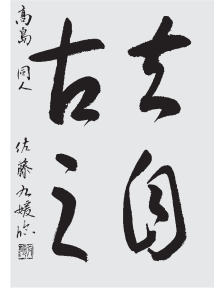 夫自
古之
高島 同人 佐藤九媛臨